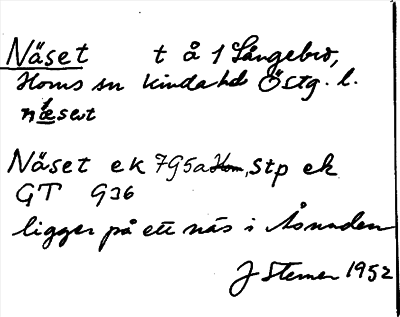 Näset t å 1 Långebro,
Horns sn Kinda hd Östg. l.
næset
Näset ek 795a Hom, Stp ek
GT 936
ligger på ett näs i Åsunden
J Sterner 1952